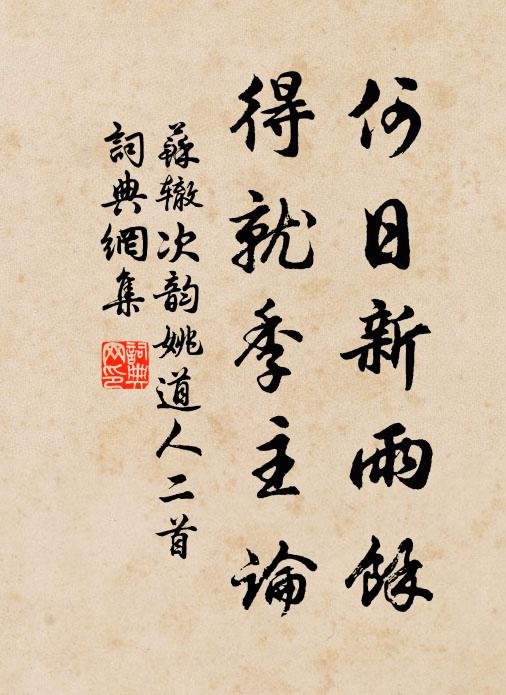 何日新雨餘
得就季主論
蘇辙次韵姚道人二首
詞典網集
詞典网印